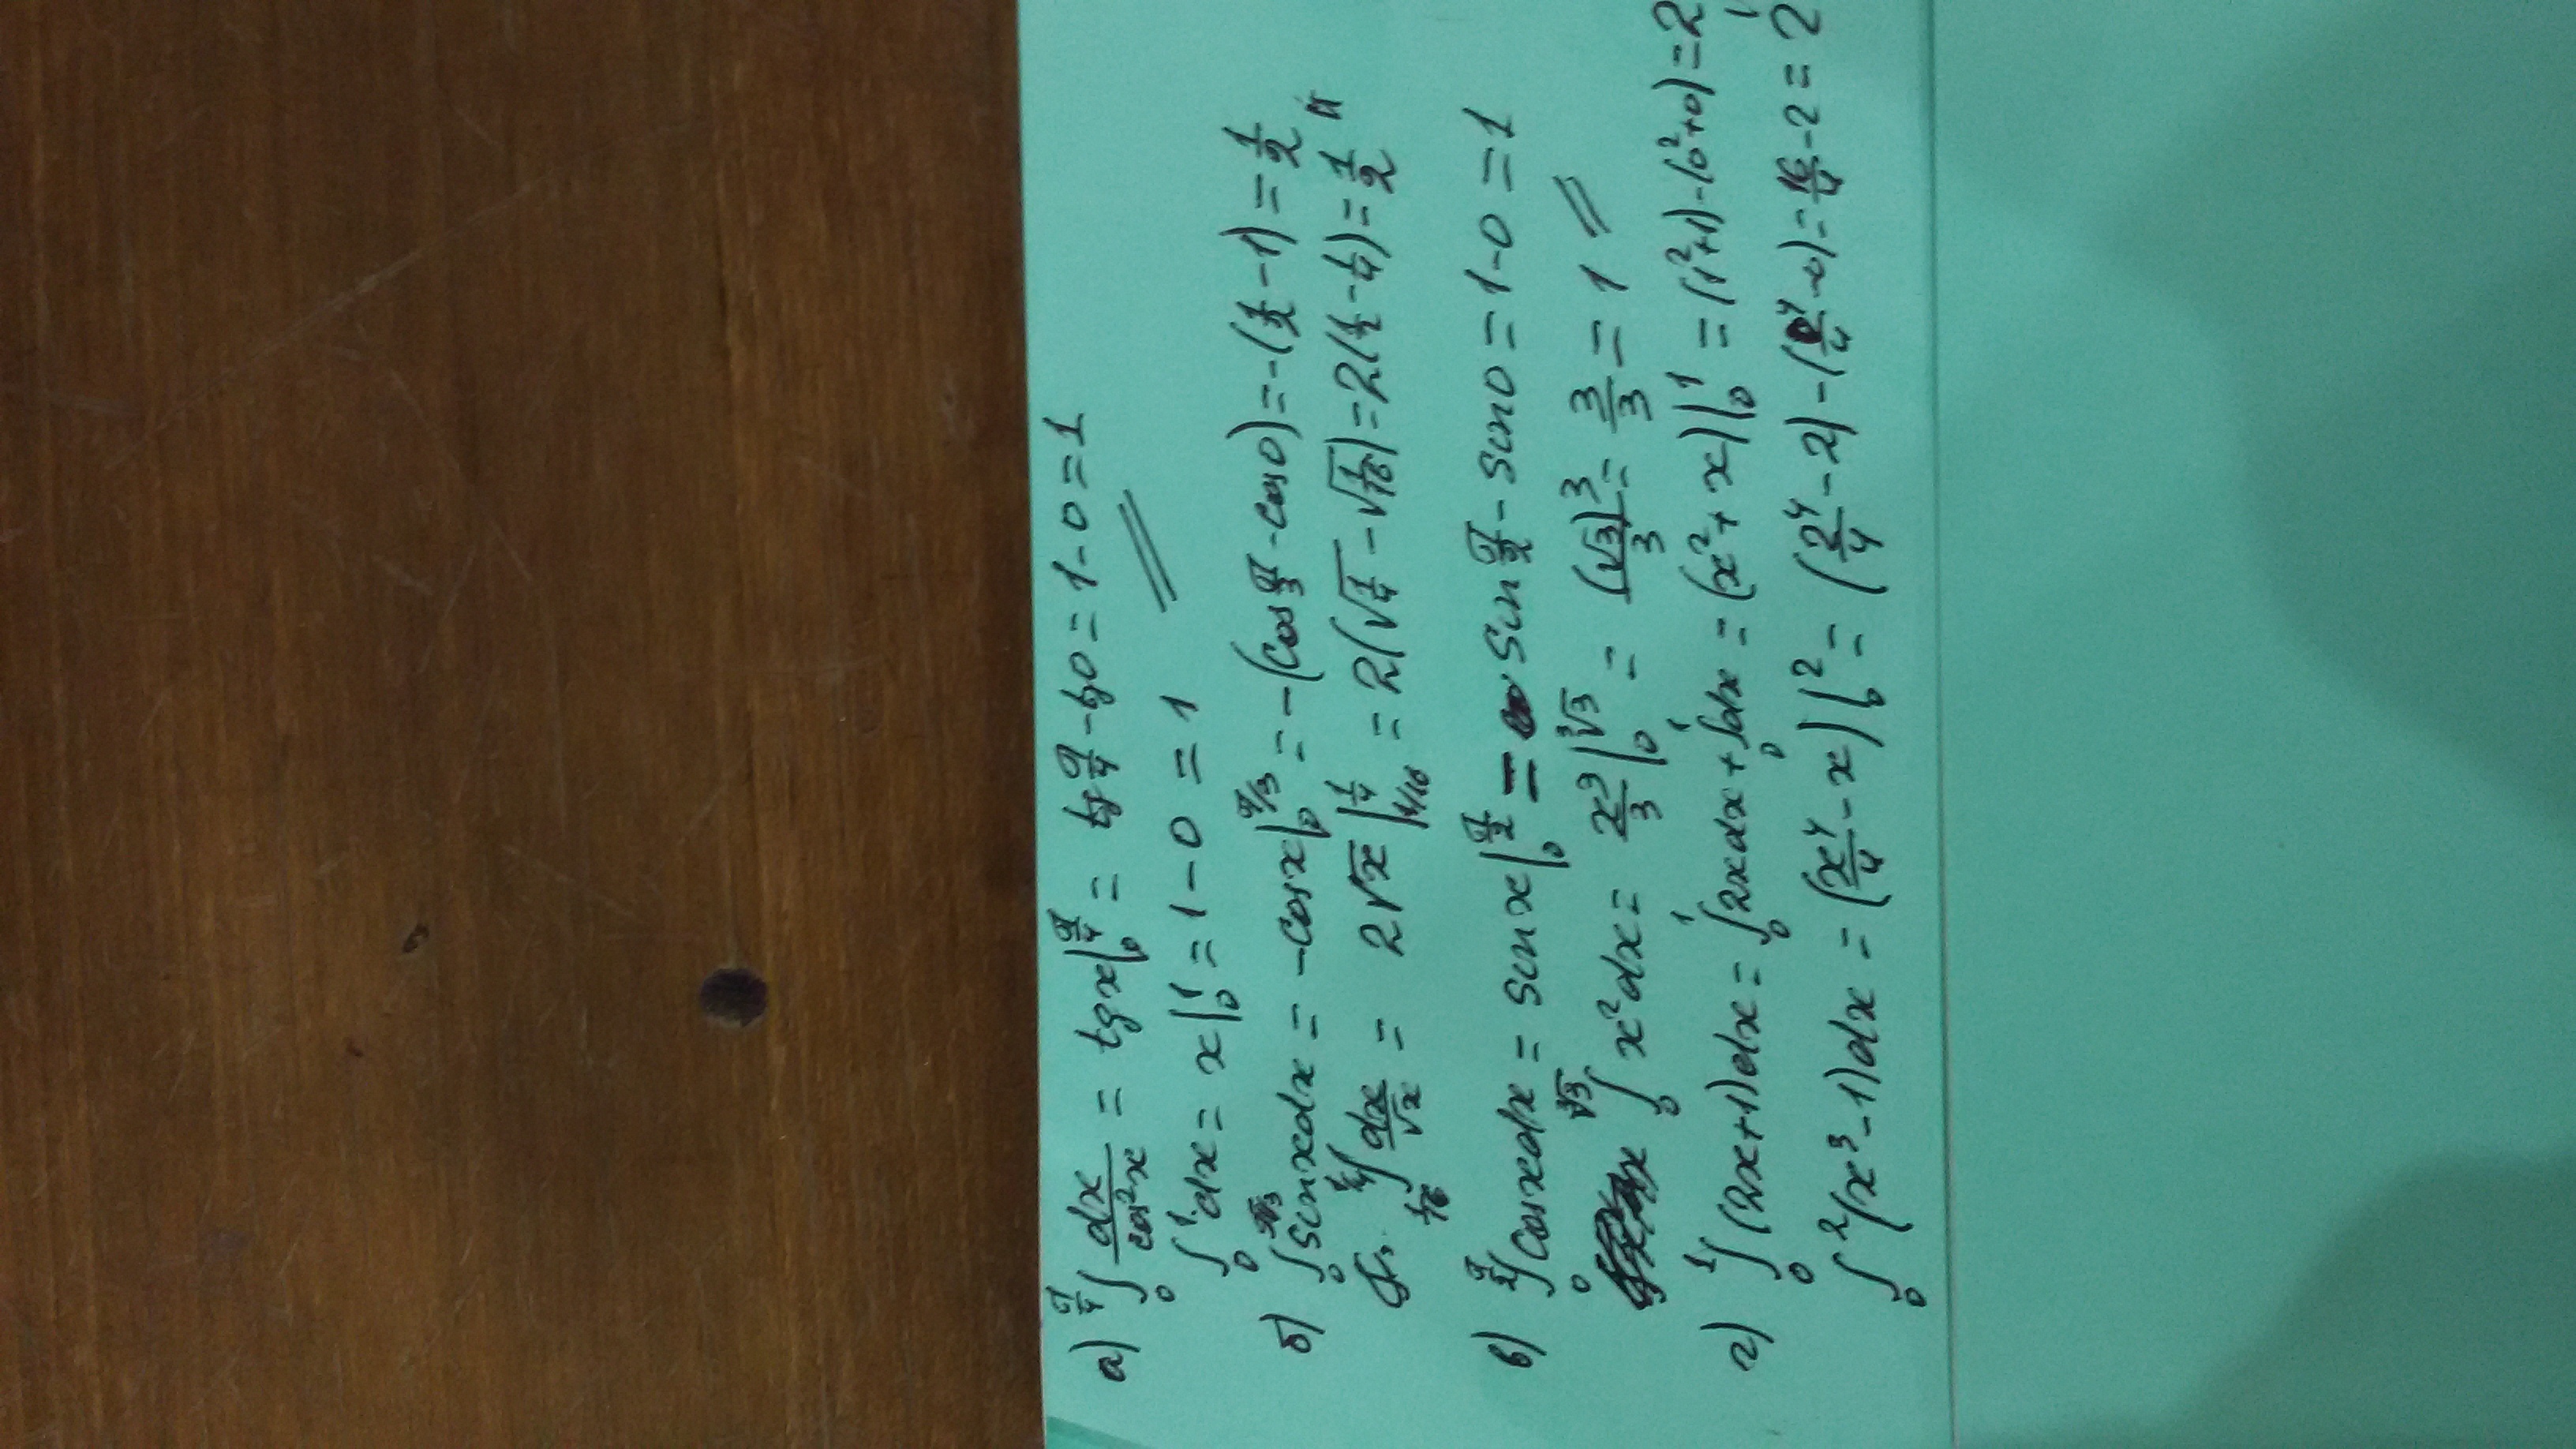 а) ∫₀^{π/4} dx/cos²x = tgx|₀^{π/4} = tg π/4 - tg0 = 1-0=1
∫₀¹ dx = x|₀¹ = 1-0=1
б) ∫₀^{π/3} sinxdx = -cosx|₀^{π/3} = -(cos π/3 - cos0) = -(1/2 - 1) = 1/2
∫_{1/16}^{1/4} dx/√x = 2√x|_{1/16}^{1/4} = 2(√(1/4) - √(1/16)) = 2(1/2 - 1/4) = 1/2
в) ∫₀^{π/2} cosxdx = sinx|₀^{π/2} = sin π/2 - sin0 = 1-0=1
∫₀^{∛3} x²dx = x³/3|₀^{∛3} = (∛3)³/3 = 3/3 = 1
г) ∫₀¹ (2x+1)dx = ∫₀¹ 2xdx + ∫₀¹ dx = (x²+x)|₀¹ = (1²+1)-(0²+0)=2
∫₀² (x³-1)dx = (x⁴/4 - x)|₀² = (2⁴/4 - 2) - (0⁴/4 - 0) = 16/4 - 2 = 2